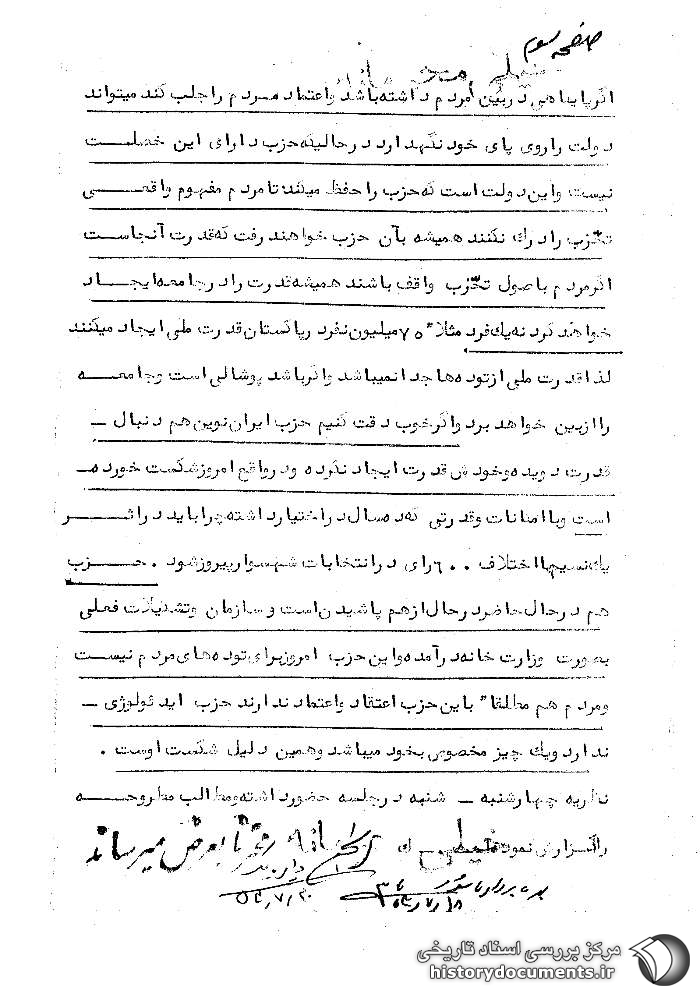 صفحه سوم
خیلی محرمانه
اگرپایگاهی دربین مردم داشته‌باشد واعتماد مردم راجلب کند میتواند
دولت راروی پای خود نگهدارد درحالیکه حزب دارای این خصلت
نیست واین دولت است که حزب را حفظ میکند تامردم مفهوم واقعی
تحزّب رادرک نکنند همیشه بآن حزب خواهند رفت که قدرت آنجاست
اگرمردم باصول تحزّب واقف باشند همیشه قدرت رادرجامعه ایجاد
خواهند کرد نه یک فرد مثلا" ۷۵ میلیون نفر درپاکستان قدرت ملی ایجاد میکنند
لذا قدرت ملی ازتوده ها جدا نمیباشد واگرباشد پوشالی است وجامعه
راازبین خواهد برد واگرخوب دقت کنیم حزب ایران نوین هم دنبال –
قدرت دویده وخودش قدرت ایجاد نکرده ودرواقع امروز شکست خورده
است وباامکانات وقدرتی که ده سال دراختیار داشته چرا باید دراثر
یک نسیم بااختلاف ۶۰۰ رای درانتخابات شهسوار پیروز شود . حزب
هم درحال حاضر درحال ازهم پاشیدن است وسازمان وتشکیلات فعلی
بصورت وزارت خانه درآمده واین حزب امروز برای توده های مردم نیست
ومردم هم مطلقا" باین حزب اعتقاد واعتماد ندارند حزب ایدئولوژی –
ندارد ویک چیز مخصوص بخود میباشد وهمین دلیل شکست اوست .
نظریه چهارشنبه – شنبه درجلسه حضور داشته ومطالب مطروحه
راگزارش نموده
بعرض میرساند
مرکز بررسی اسناد تاریخی
historydocuments.ir